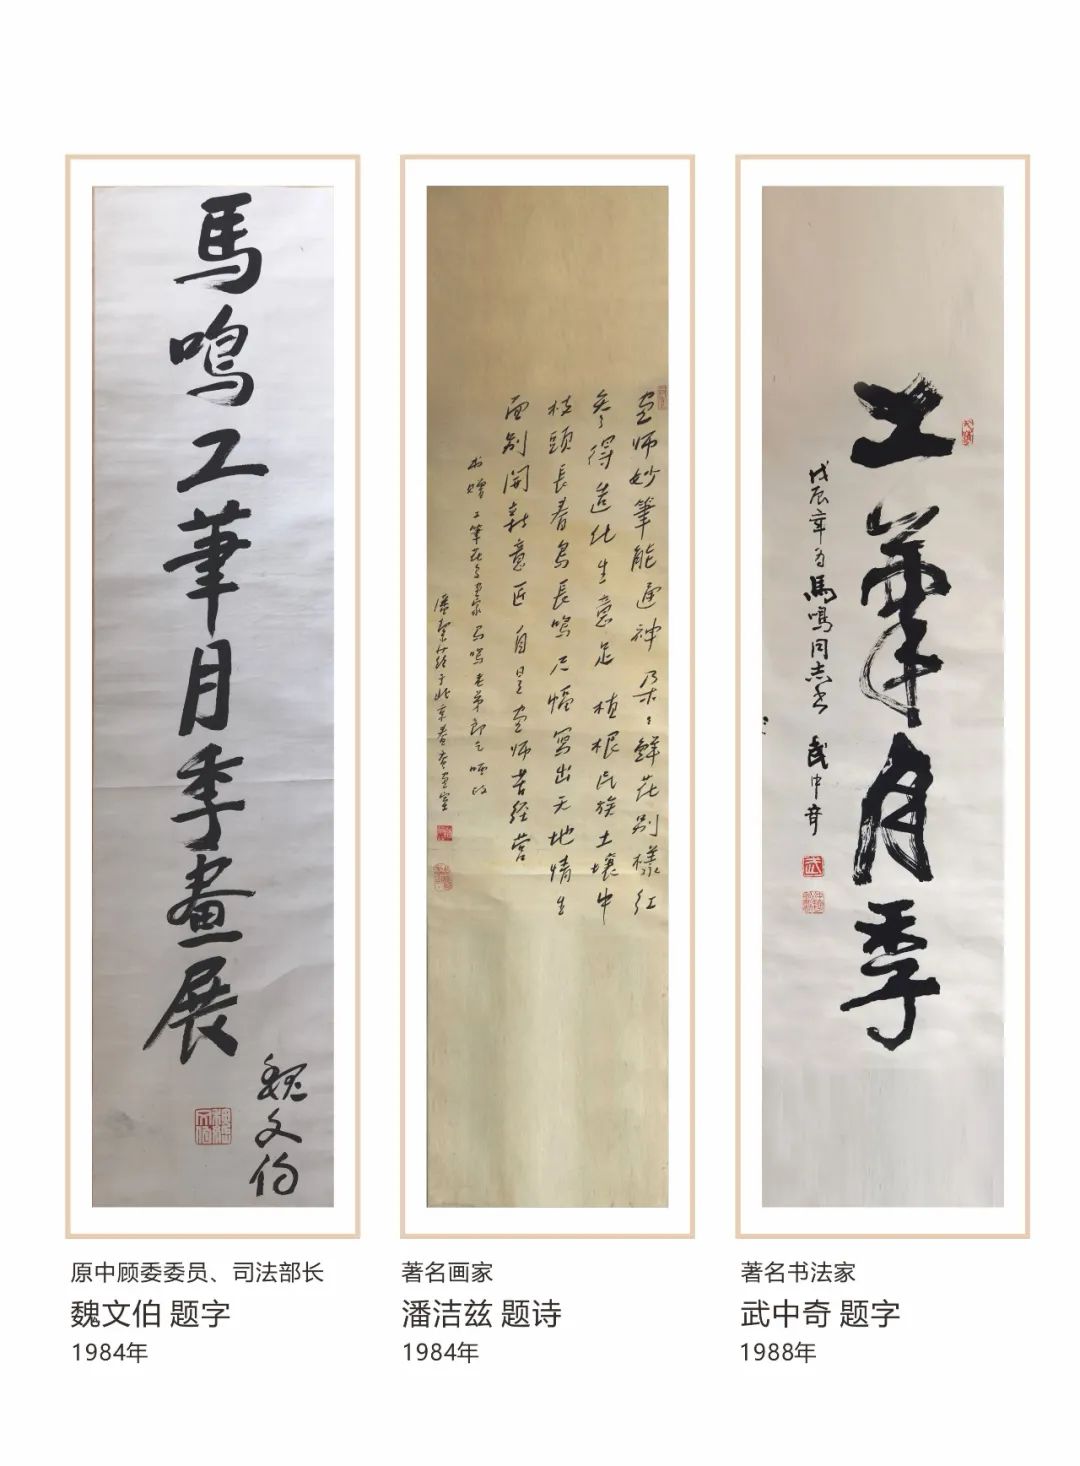 馬鳴工筆月季畫展
魏文伯
畫师妙筆能通神朵〻鮮花别樣红
参得造化生意足植根民族土壤中
枝頭長春鳥長鳴尺幅寫出天地情生
面别開新意匠自是畫师苦经营
书赠工筆花鸟画家馬鳴老弟 哂政
潘絜兹于北京春蚕画室
工筆月季
戊辰年为馬鳴同志書 武中奇
原中顾委委员、司法部长
魏文伯 题字
1984年
著名画家
潘洁兹 题诗
1984年
著名书法家
武中奇 题字
1988年